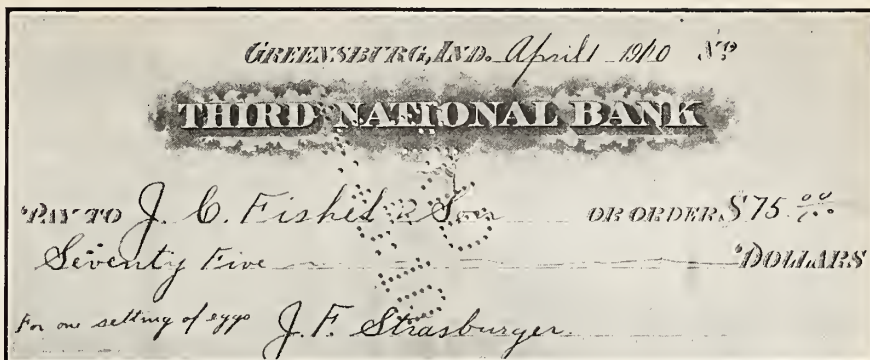 GREENSBURG, IND. April 1 1910 No
THIRD NATIONAL BANK
PAY TO J. C. Fishel & Son OR ORDER $75 00/100
Seventy Five DOLLARS
For one setting of eggs J. F. Strasburger